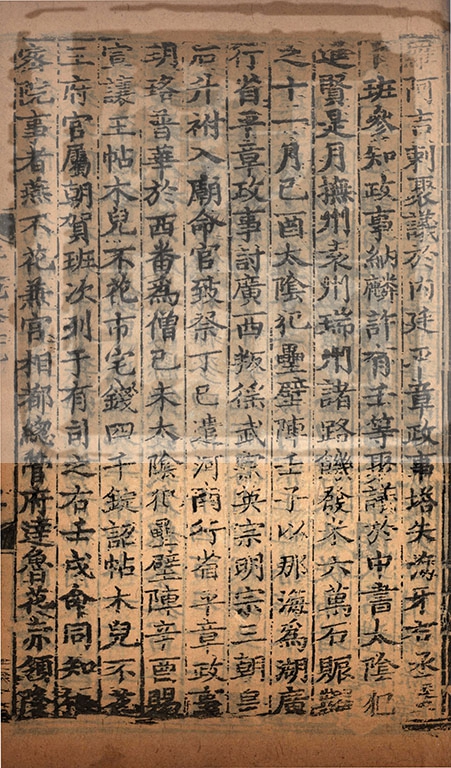 羅阿吉剌聚議於內廷平章政事塔失海牙右丞
班參知政事納麟許有壬等聚議於中書太陰犯
進賢是月撫州袁州瑞州諸路饑發米六萬石賑糶
之十一月己酉太陰犯壘壁陣壬子以那海爲湖廣
行省平章政事討廣西叛徭武宗英宗明宗三朝皇
后升祔入廟命官致祭丁巳遣河南行省平章政事
玥珞普華於西番爲僧己未太陰犯壘壁陣辛酉賜
宣讓王帖木兒不花市宅錢四千錠詔帖木兒不花
王府官屬朝賀班次列于有司之右壬戌命同知樞
密院事者燕不花兼宮相都總管府達魯花赤領隆